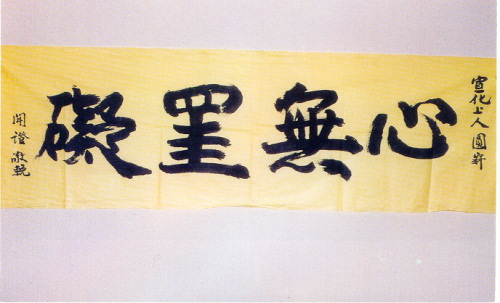 宣化上人圓寂
心無罣礙
開證敬輓